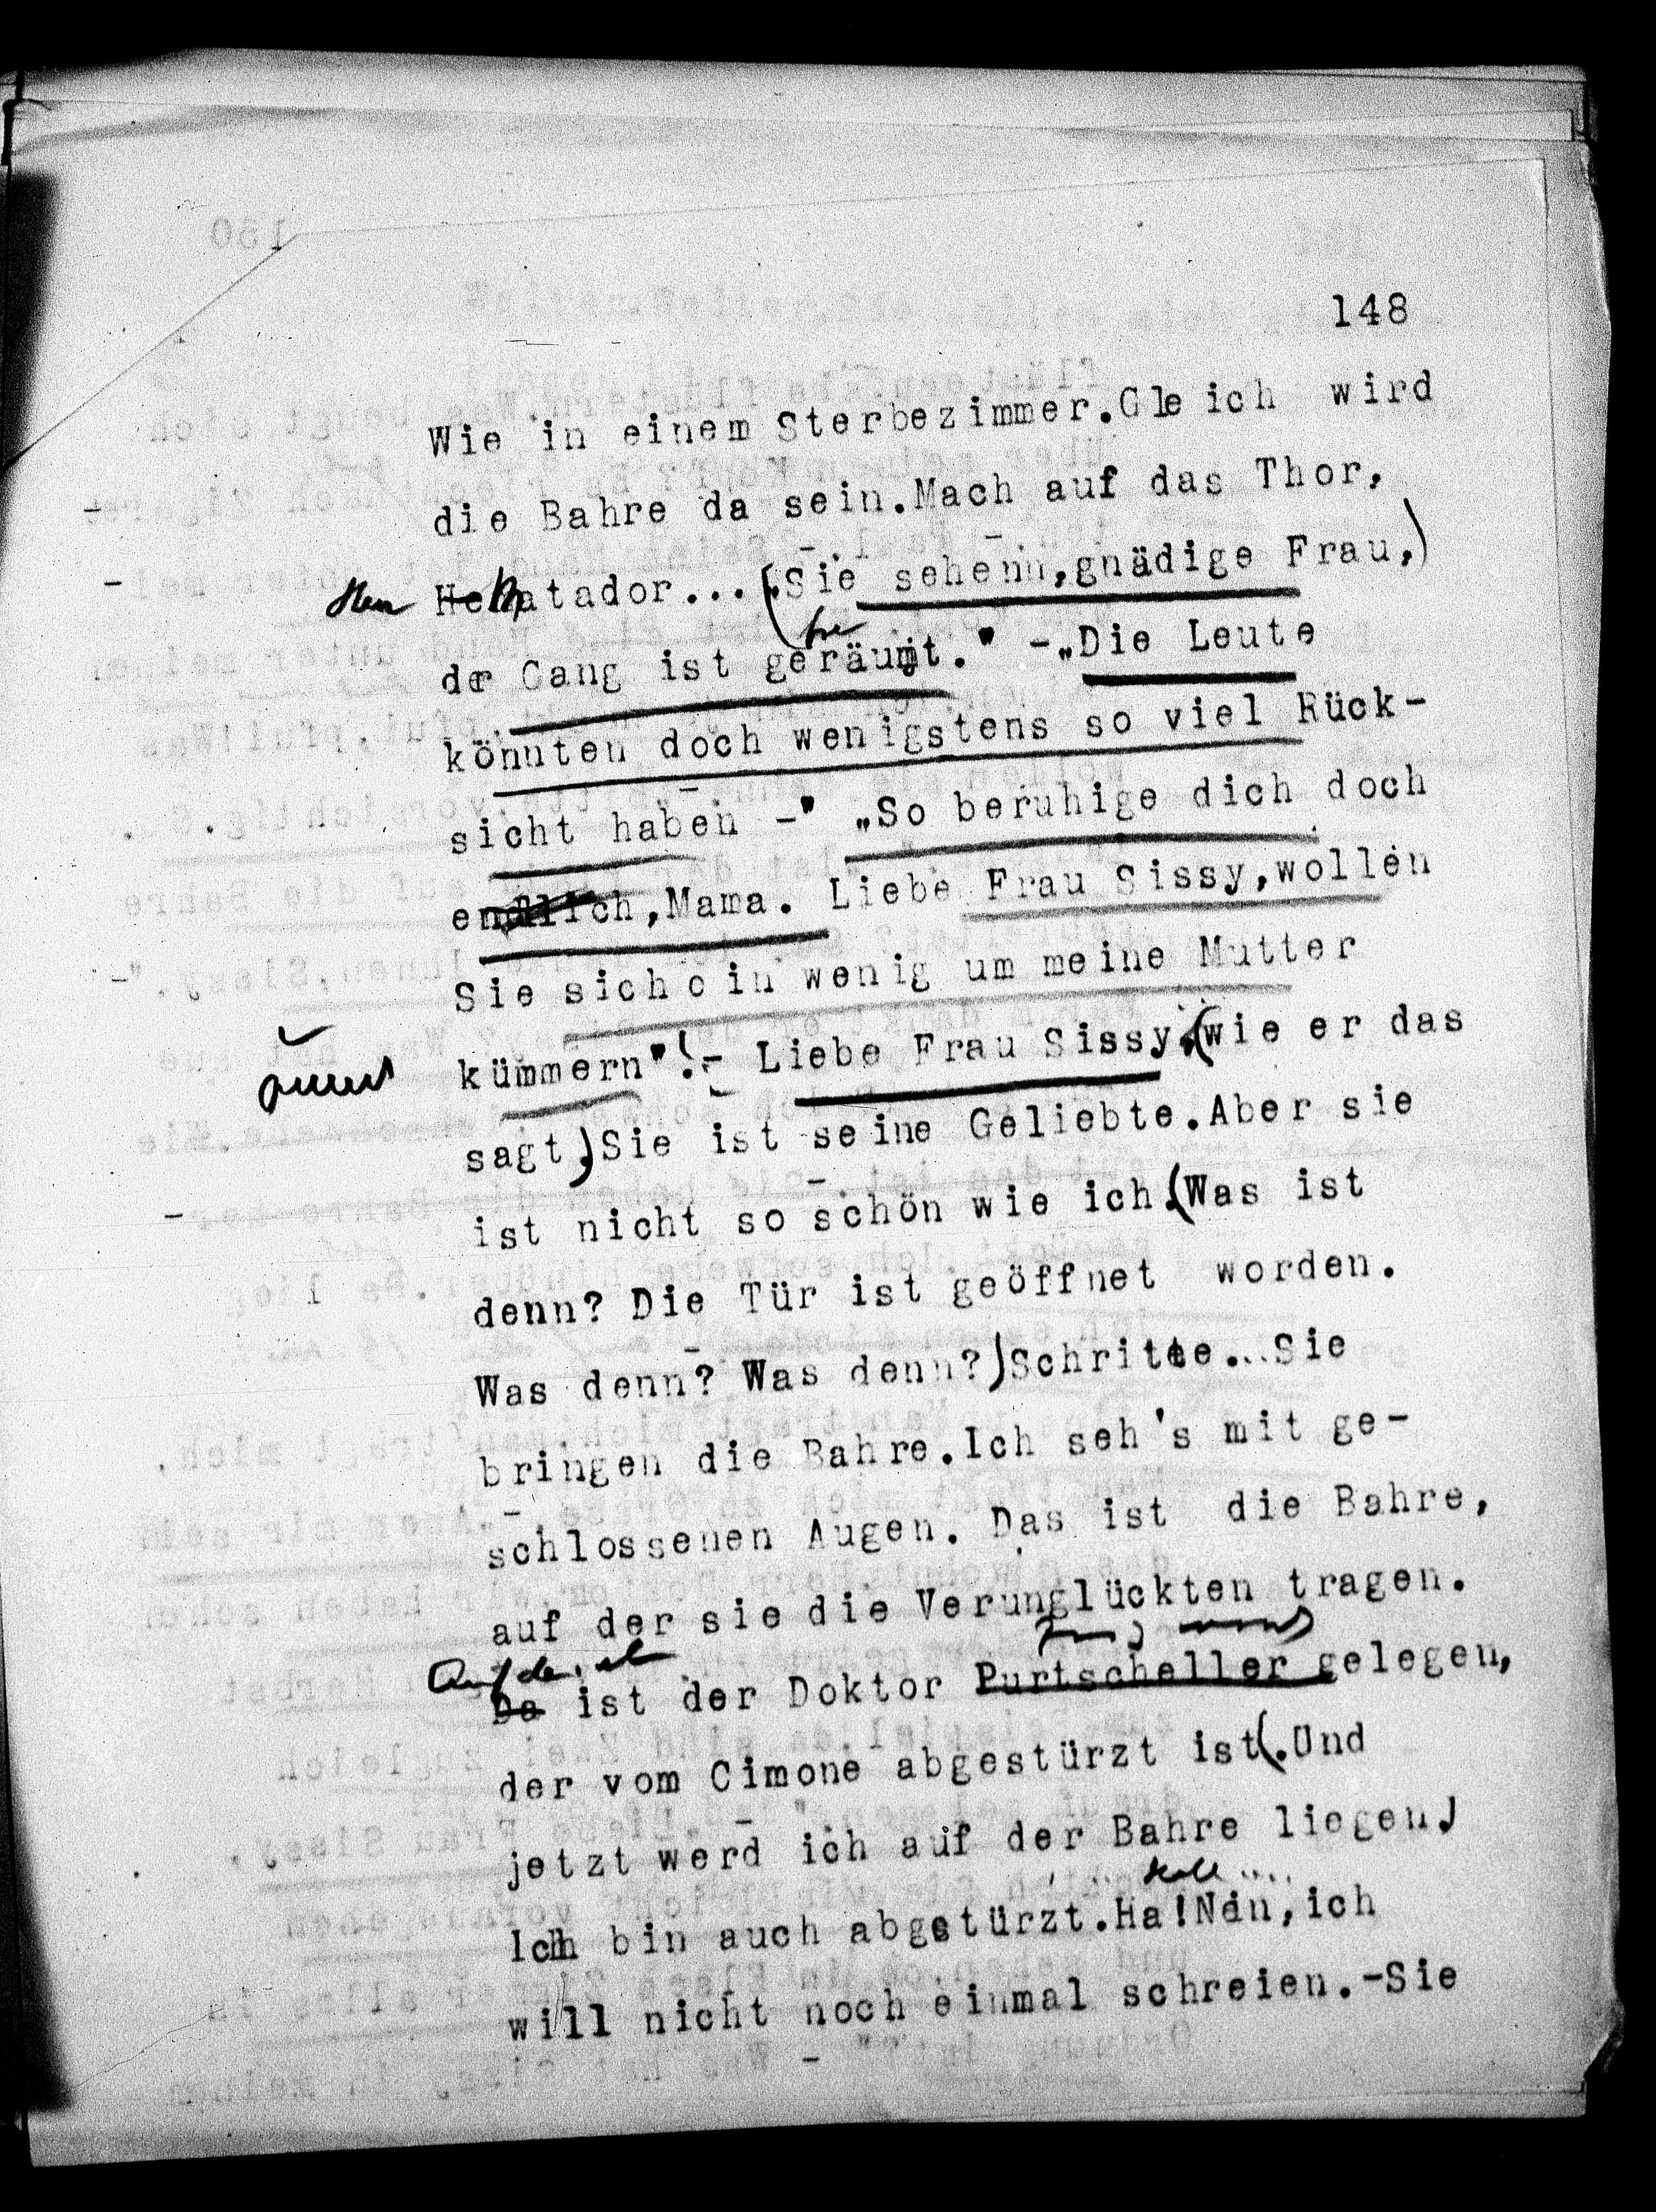 148
Wie in einem Sterbezimmer.Gleich wird
die Bahre da sein.Mach auf das Thor,
Herr Matador...(„Sie sehenn,gnädige Frau,)
der Gang ist geräumt." -„Die Leute
könnten doch wenigstens so viel Rück-
sicht haben -" „So beruhige dich doch
endlich,Mama. Liebe Frau Sissy,wollen
Sie sich ein wenig um meine Mutter
kümmern"!- Liebe Frau Sissy.(wie er das
sagt.)Sie ist seine Geliebte.Aber sie
ist nicht so schön wie ich.(Was ist
denn? Die Tür ist geöffnet worden.
Was denn? Was denn?)Schritte...Sie
bringen die Bahre.Ich seh's mit ge-
schlossenen Augen. Das ist die Bahre,
auf der sie die Verunglückten tragen.
Auf der
Da ist der Doktor Purtscheller gelegen,
der vom Cimone abgestürzt ist(.Und
jetzt werd ich auf der Bahre liegen)
Ich bin auch abgestürzt.Ha!Nein,ich
will nicht noch einmal schreien.-Sie